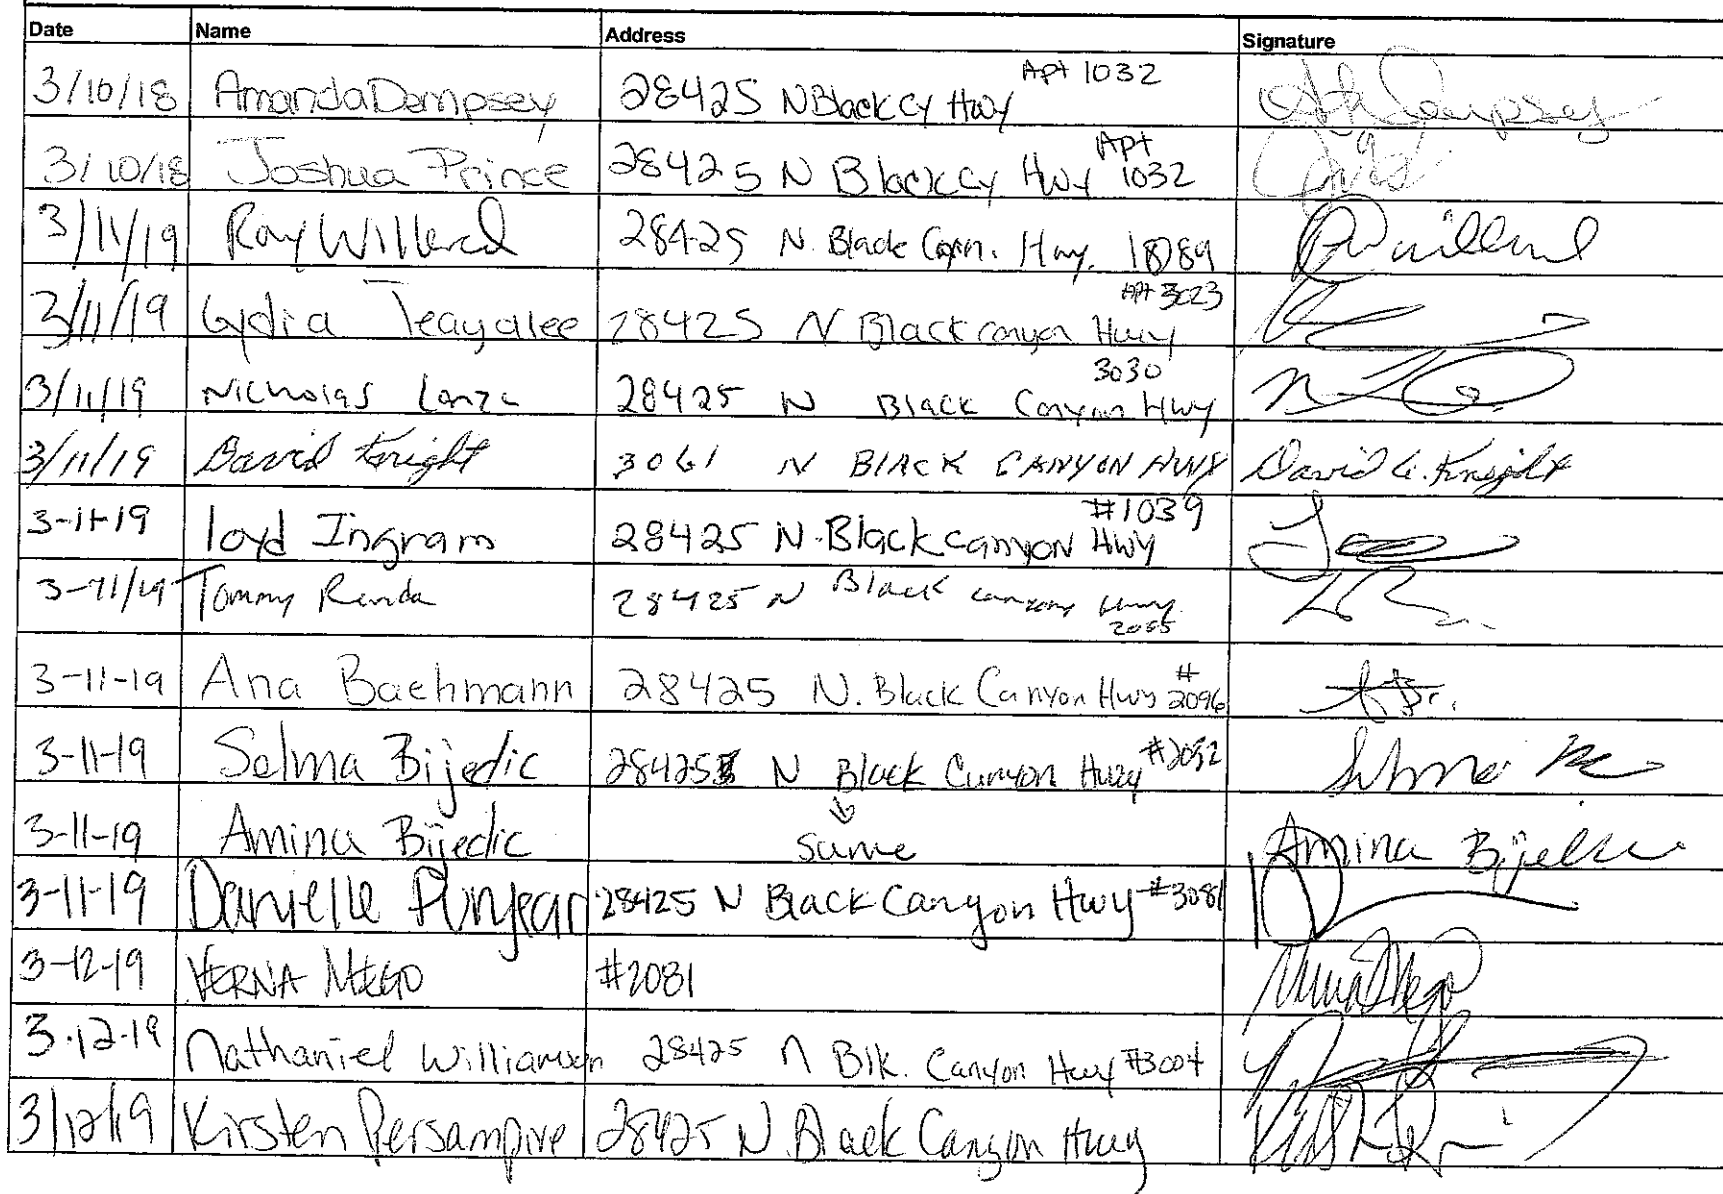 Date Name Address Signature
3/10/18 Amanda Dempsey 28425 N Black Cy Hwy Apt 1032 Dempsey
3/10/18 Joshua Prince 28425 N Black Cy Hwy Apt 1032
3/11/19 Ray Willard 28425 N. Black Cqn. Hwy. Willard
3/11/19 Lydia Teayalee 28425 N Black canyon Hwy Apt 3023
3/11/19 Nicholas Lanza 28425 N Black Canyon Hwy 3030
3/11/19 David Knight 3061 N BLACK CANYON HWY David G. Knight
3-11-19 loyd Ingram 28425 N. Black canyon Hwy #1039
3-11/19 Tommy Renda 28425 N Black canyon Hwy
3-11-19 Ana Bachmann 28425 N. Black Canyon Hwy # 2096
3-11-19 Selma Bijedic 28425 N Black Canyon Hwy Selma
3-11-19 Amina Bijedic same Amina
3-11-19 Danielle Punjear 28425 N Black Canyon Hwy #3081
3-12-19 VERNA MEGO #2081 Verna Mego
3-12-19 Nathaniel Williamson 28425 N Blk. Canyon Hwy #3004
3/12/19 Kirsten Persampire 28425 N Black Canyon Hwy